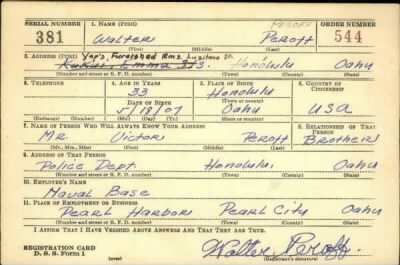 SERIAL NUMBER 1. NAME (Print) PEROFF ORDER NUMBER
381 Walter Peroff 544
(First) (Middle) (Last)
2. ADDRESS (Print) Yap's Furnished Rms. Lusitana St.
Honolulu Oahu
(Number and street or R. F. D. number) (Town) (County) (State)
3. TELEPHONE 4. AGE IN YEARS 5. PLACE OF BIRTH 6. COUNTRY OF CITIZENSHIP
33 Honolulu
DATE OF BIRTH (Town or county)
5/18/07 Oahu USA
(Exchange) (Number) (Mo.) (Day) (Yr.) (State or country)
7. NAME OF PERSON WHO WILL ALWAYS KNOW YOUR ADDRESS 8. RELATIONSHIP OF THAT PERSON
Mr. Victor Peroff Brother
(Mr., Mrs., Miss) (First) (Middle) (Last)
9. ADDRESS OF THAT PERSON
Police Dept. Honolulu Oahu
(Number and street or R. F. D. number) (Town) (County) (State)
10. EMPLOYER'S NAME
Naval Base
11. PLACE OF EMPLOYMENT OR BUSINESS
Pearl Harbor Pearl City Oahu
(Number and street or R. F. D. number) (Town) (County) (State)
I AFFIRM THAT I HAVE VERIFIED ABOVE ANSWERS AND THAT THEY ARE TRUE.
REGISTRATION CARD
D. S. S. Form 1 (over) Walter Peroff
(Registrant's signature)